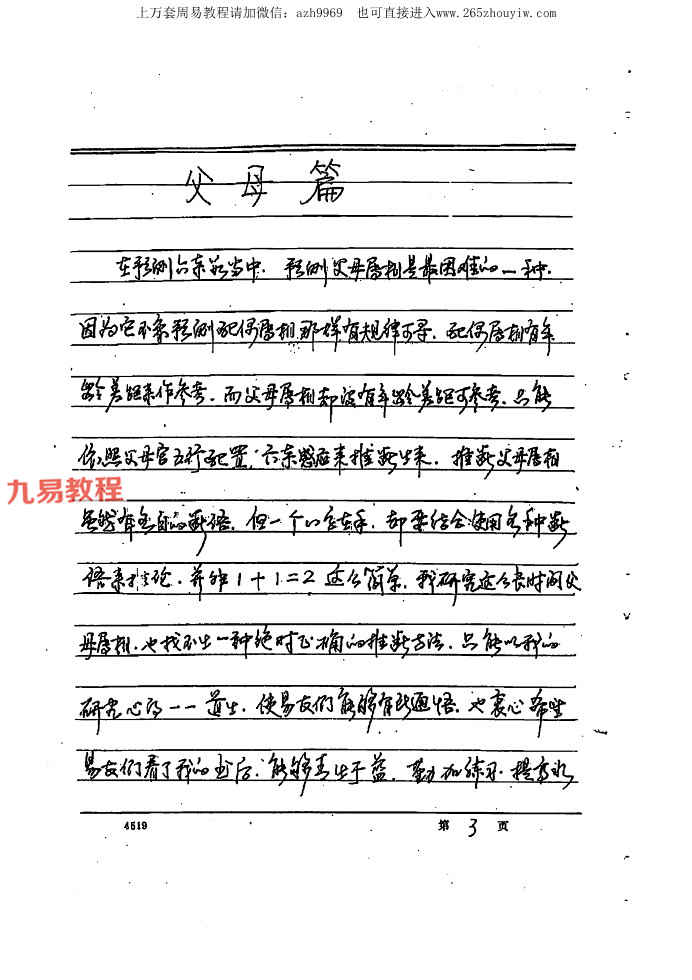 上万套周易教程请加微信：azh9969 也可直接进入www.265zhouyiw.com
父母篇
在预测六亲穷当中，预测父母属相是最困难的一种.
因为它不象预测配偶属相那样有规律可寻，配偶属相有年
龄差距来作参考，而父母属相却没有年龄差距可参考，只能
依照父母宫五行配置，六亲感应来推断出来，推断父母属相
九易教程
虽然有各自的断语，但一个八字在手，却要结合使用各种断
语来推论，并非1+1=2这么简单，我研究这么长时间父
母属相，也找不出一种绝对正确的推断方法，只能以我的
研究心得一一道出，使易友们能够有所通悟，也衷心希望
易友们看了我的书后，能够青出于蓝，勤加练习，提高水
4519 第3页